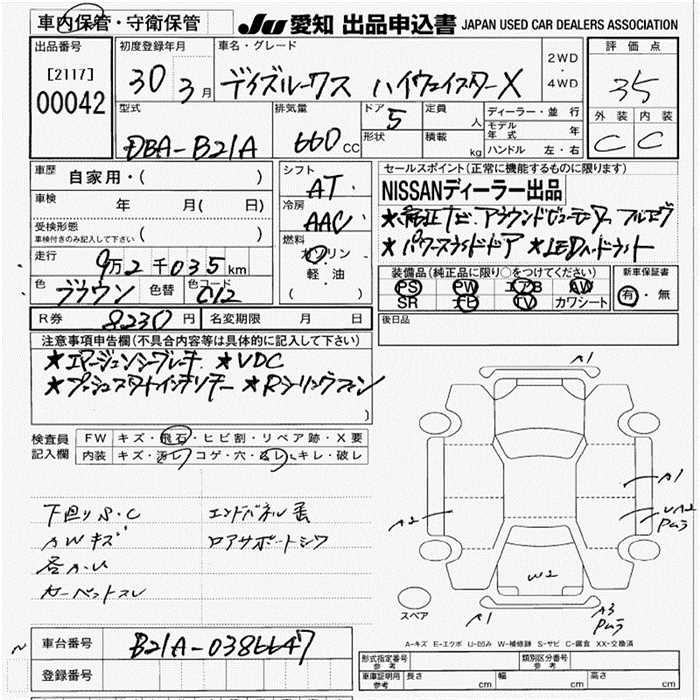 車内保管・守衛保管 JU 愛知 出品申込書 JAPAN USED CAR DEALERS ASSOCIATION
出品番号 初度登録年月 車名・グレード 評価点
[2117] 30 3月 デイズルークス ハイウェイスターX 2WD・4WD 35
00042 型式 排気量 ドア 定員 ディーラー・並行 外装 内装
DBA-B21A 660cc 5 形状 人 積載 kg モデル年式 年 ハンドル 左・右 C C
車歴 自家用・( ) シフト AT セールスポイント(正常に機能するものに限ります)
車検 年 月( 日) 冷房 AAC NISSANディーラー出品
受検形態 車検付きのみ記入して下さい ( ) 燃料 ガソリン 軽・油 ( )
★純正ナビ アラウンドビューモニター フルセグ
★パワースライドドア ★LEDヘッドライト
走行 9万2千035km 装備品(純正品に限り○をつけてください) 新車保証書
色 ブラウン 色替 色コード C12 PS PW エアB AW 有・無
SR ナビ TV カワシート
R券 8230円 名変期限 月 日 後日品
注意事項申告欄(不具合内容等は具体的に記入して下さい)
★エマージェンシーブレーキ ★VDC
★プッシュスタートインテリキー ★Rシーリングファン
)
検査員記入欄 FW キズ・飛石・ヒビ割・リペア跡・X要
内装 キズ・汚レ・コゲ・穴・スレ・キレ・破レ
下回りS・C エンドパネル歪
AWキズ ロアサポートシワ
各カバ
カーペットスレ
A1
A1
A2 UA2 ムラ
W2
A1 A3 ムラ
スペア
A-キズ E-エクボ U-凹み W-補修跡 S-サビ C-腐食 XX-交換済
車台番号 B21A-0386647 型式指定番号 参考 類別区分番号 参考
登録番号 車庫証明用 参考 長さ cm 幅 cm 高さ cm